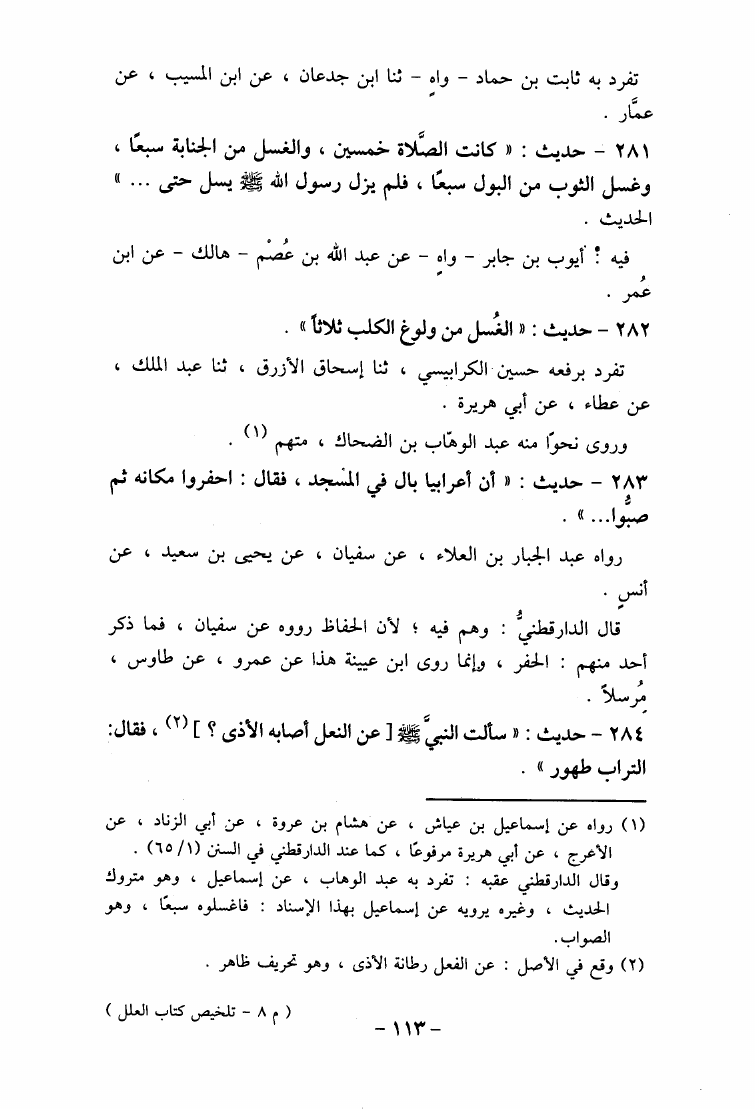 تفرد به ثابت بن حماد – واهٍ – ثنا ابن جدعان ، عن ابن المسيب ، عن
عمَّار .
٢٨١ – حديث : « كانت الصَّلاة خمسين ، والغسل من الجنابة سبعًا ،
وغسل الثوب من البول سبعًا ، فلم يزل رسول الله ﷺ يسل حتى ... »
الحديث .
فيه : أيوب بن جابر – واهٍ – عن عبد الله بن عُصْم – هالك – عن ابن
عُمر .
٢٨٢ – حديث : « الغُسل من ولوغ الكلب ثلاثاً » .
تفرد برفعه حسين الكرابيسي ، ثنا إسحاق الأزرق ، ثنا عبد الملك ،
عن عطاء ، عن أبي هريرة .
وروى نحوًا منه عبد الوهَّاب بن الضحاك ، متهم (١) .
٢٨٣ – حديث : « أن أعرابيا بال في المسْجد ، فقال : احفروا مكانه ثم
صبُّوا... » .
رواه عبد الجبار بن العلاء ، عن سفيان ، عن يحيى بن سعيد ، عن
أنسٍ .
قال الدارقطنيُّ : وهم فيه ؛ لأن الحفاظ رووه عن سفيان ، فما ذكر
أحد منهم : الحفر ، وإنما روى ابن عيينة هذا عن عمرو ، عن طاوس ،
مُرسلاً .
٢٨٤ – حديث : « سألت النبيَّ ﷺ [ عن النعل أصابه الأذى ؟ ] (٢) ، فقال:
التراب طهور » .
(١) رواه عن إسماعيل بن عياش ، عن هشام بن عروة ، عن أبي الزناد ، عن
الأعرج ، عن أبي هريرة مرفوعًا ، كما عند الدارقطني في السنن (١/ ٦٥) .
وقال الدارقطني عقبه : تفرد به عبد الوهاب ، عن إسماعيل ، وهو متروك
الحديث ، وغيره يرويه عن إسماعيل بهذا الإسناد : فاغسلوه سبعًا ، وهو
الصواب.
(٢) وقع في الأصل : عن الفعل رطانة الأذى ، وهو تحريف ظاهر .
( م ٨ – تلخيص كتاب العلل )
– ١١٣ –